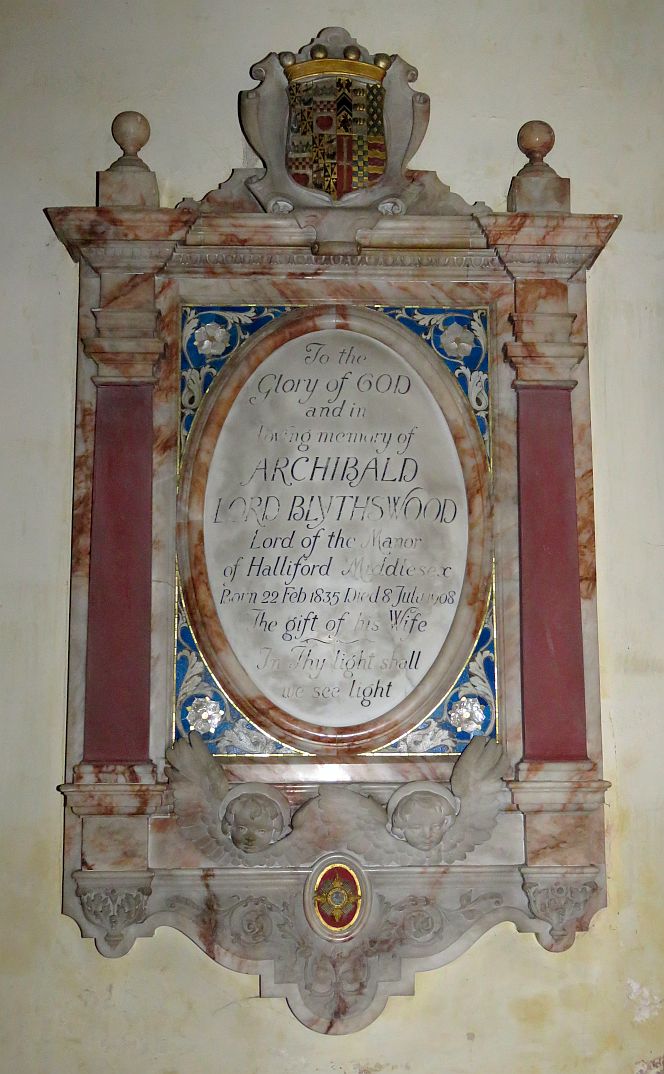 To the
Glory of GOD
and in
loving memory of
ARCHIBALD
LORD BLYTHSWOOD
Lord of the Manor
of Halliford Middlesex
Born 22 Feb 1835 Died 8 July 1908
The gift of his Wife
In Thy light shall
we see light